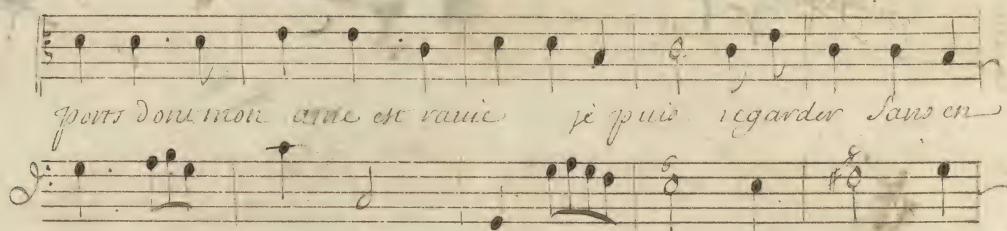 ports dont mon ame est ravie je puis regarder Sans en